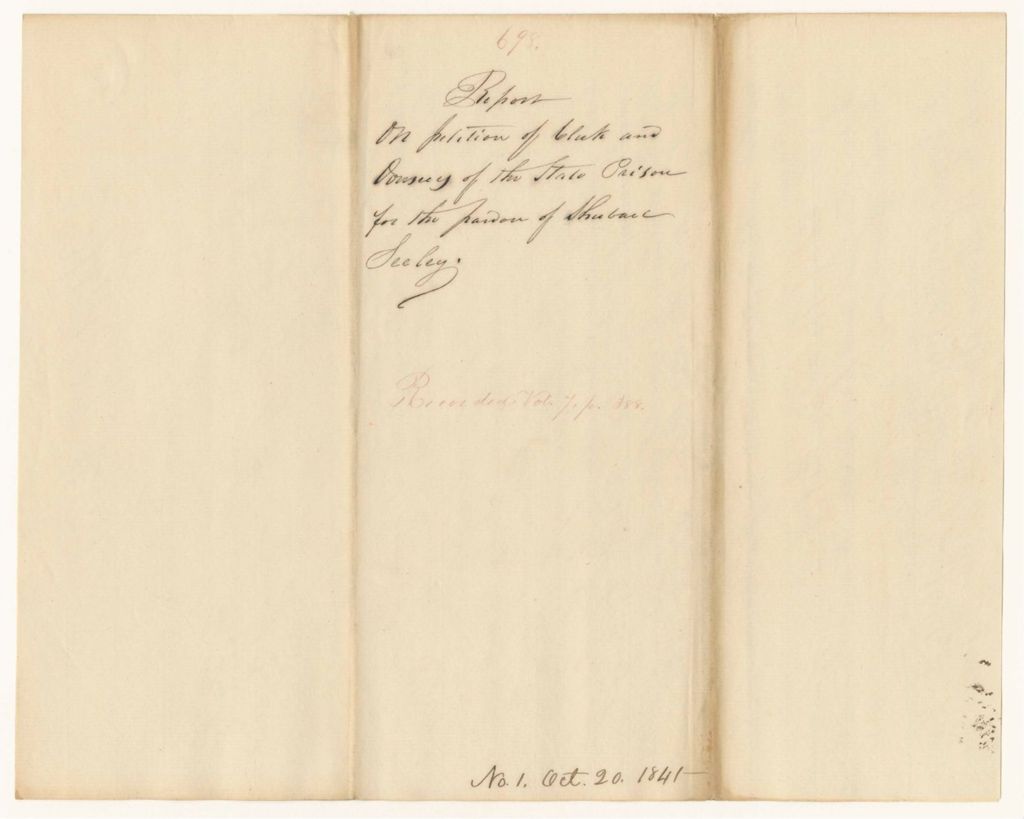 698.
Report
On petition of Clerk and
of the State Prison
for the pardon of Shubael
Seeley.
Recorded Vol. 7. p. 388.
No. 1. Oct. 20. 1841